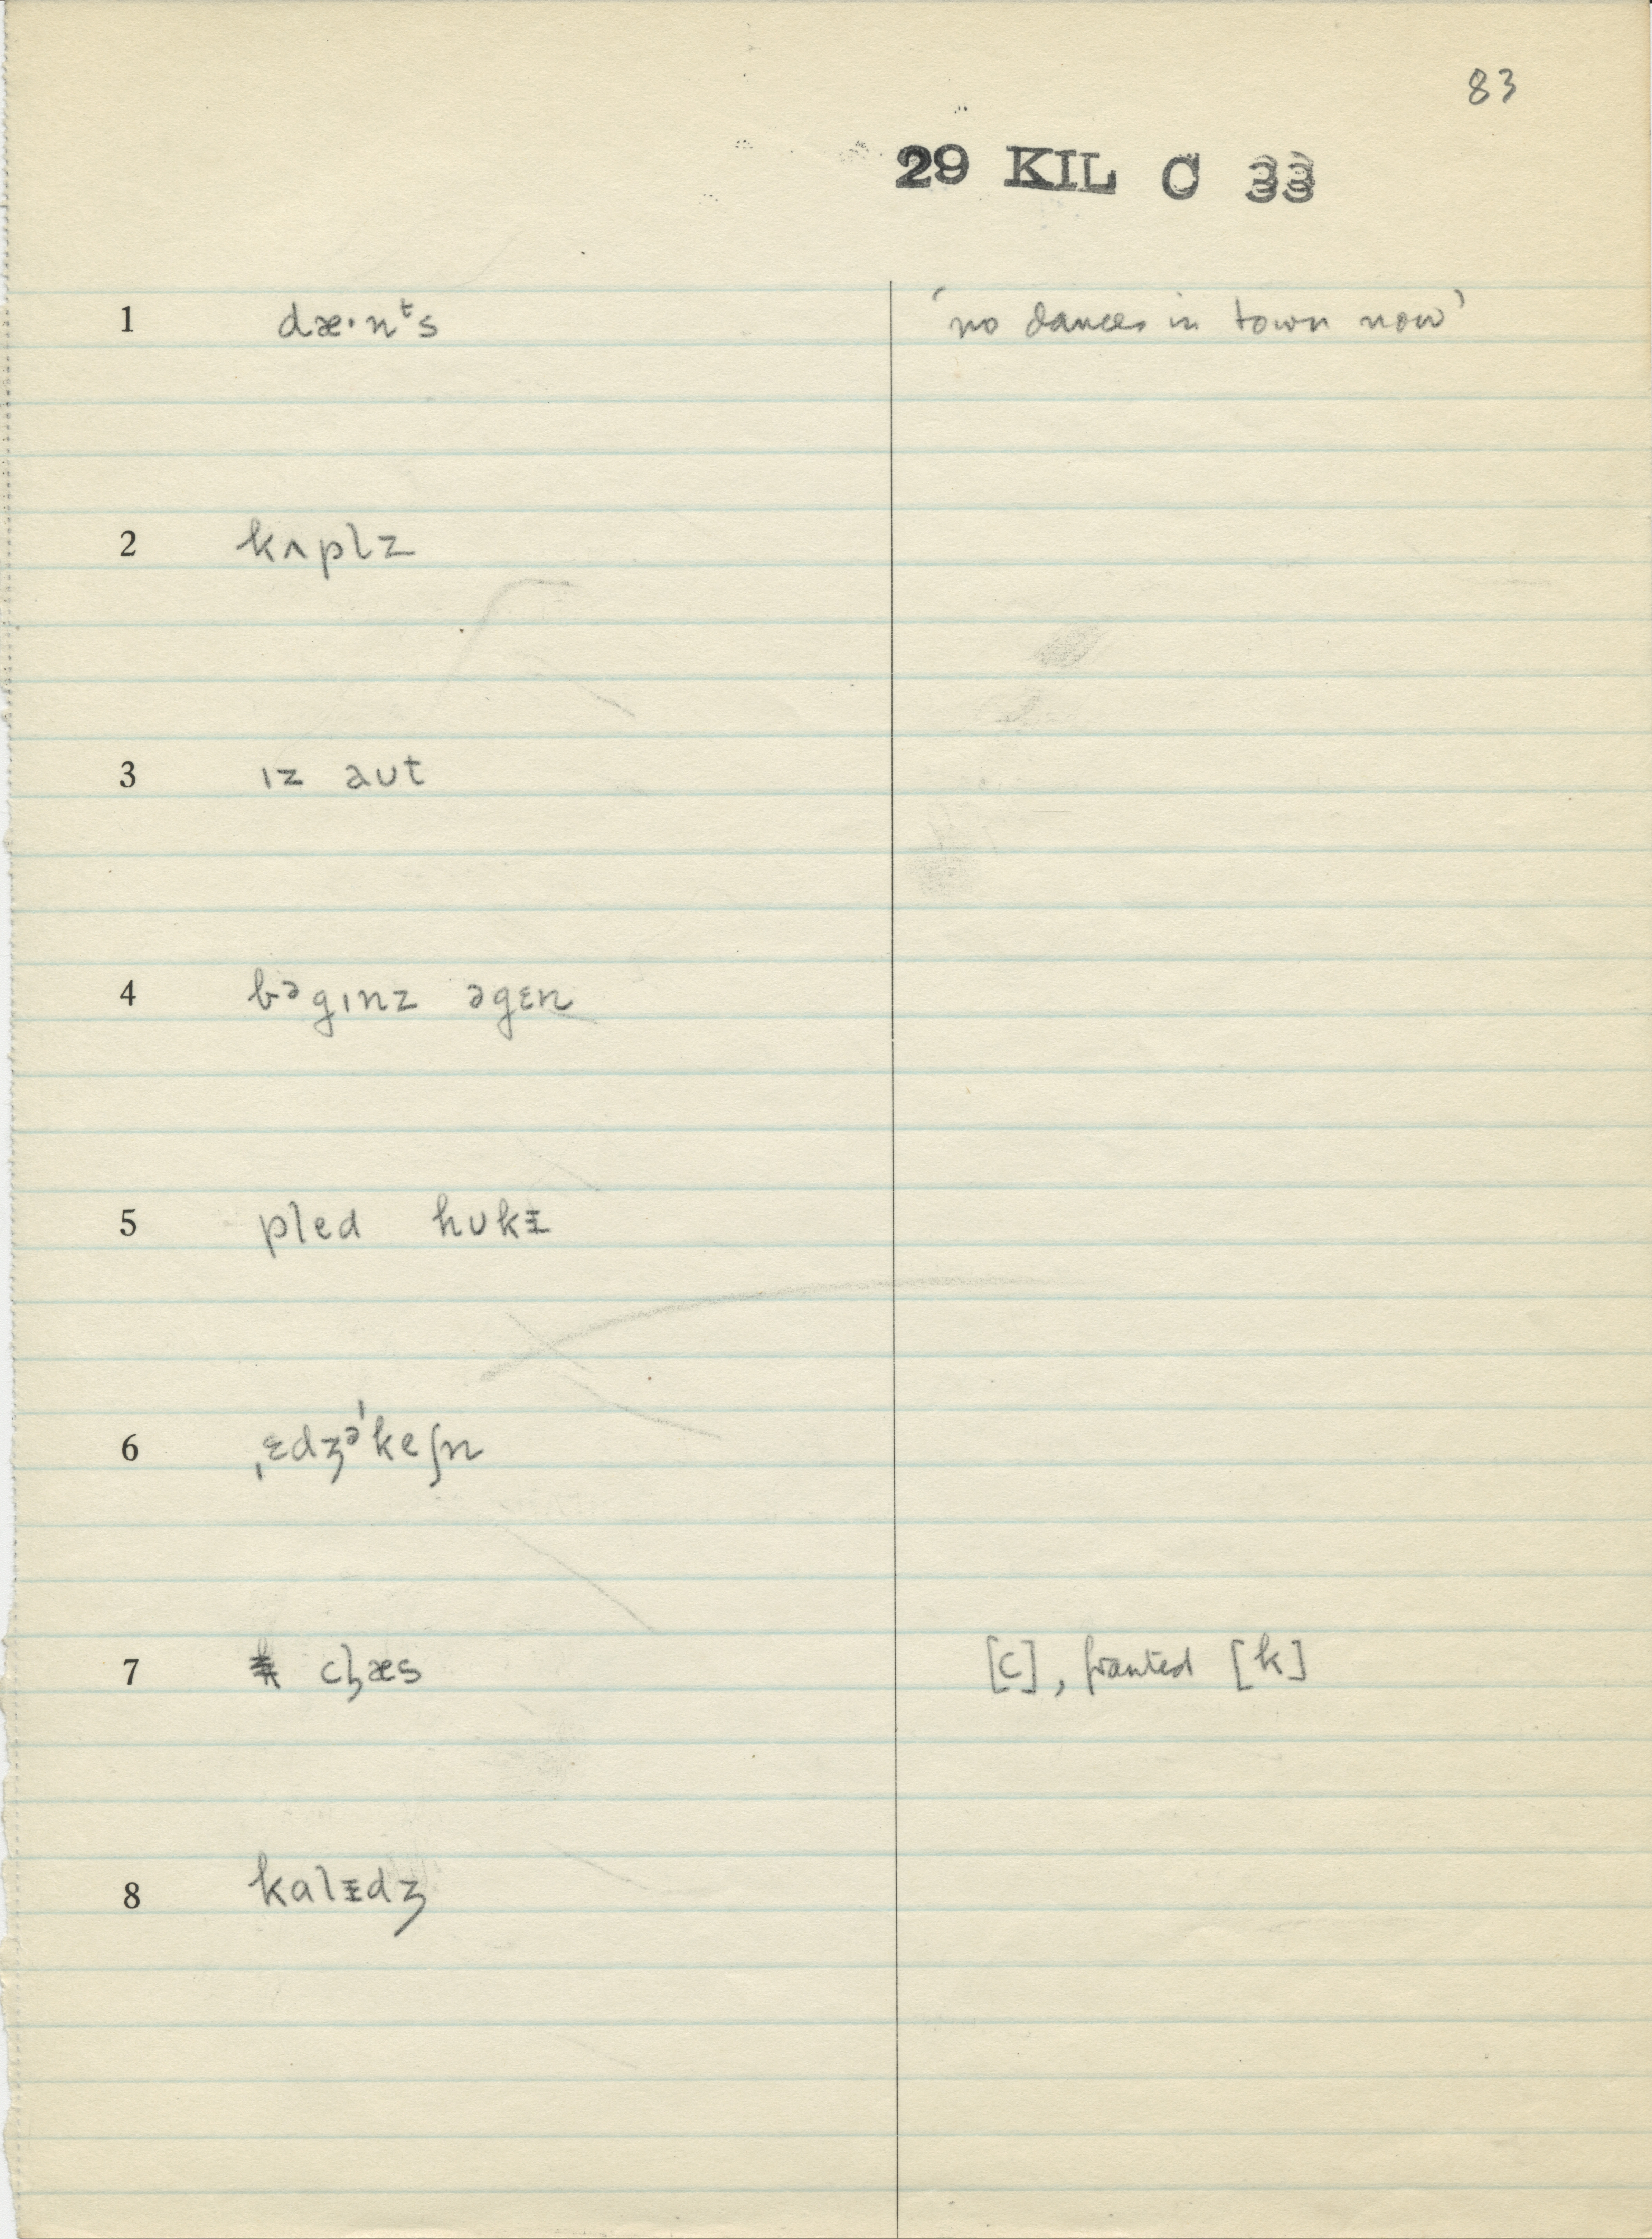 83
29 KIL C 33
1 dæ·nᵗs 'no dances in town now'
2 kʌplz
3 ɪz aʊt
4 bᵊgɪnz əgɛn
5 pled hʊkɪ
6 ˌɛdʒᵊˈkeʃn
7 cl̥æs [c], fronted [k]
8 kalɪdʒ